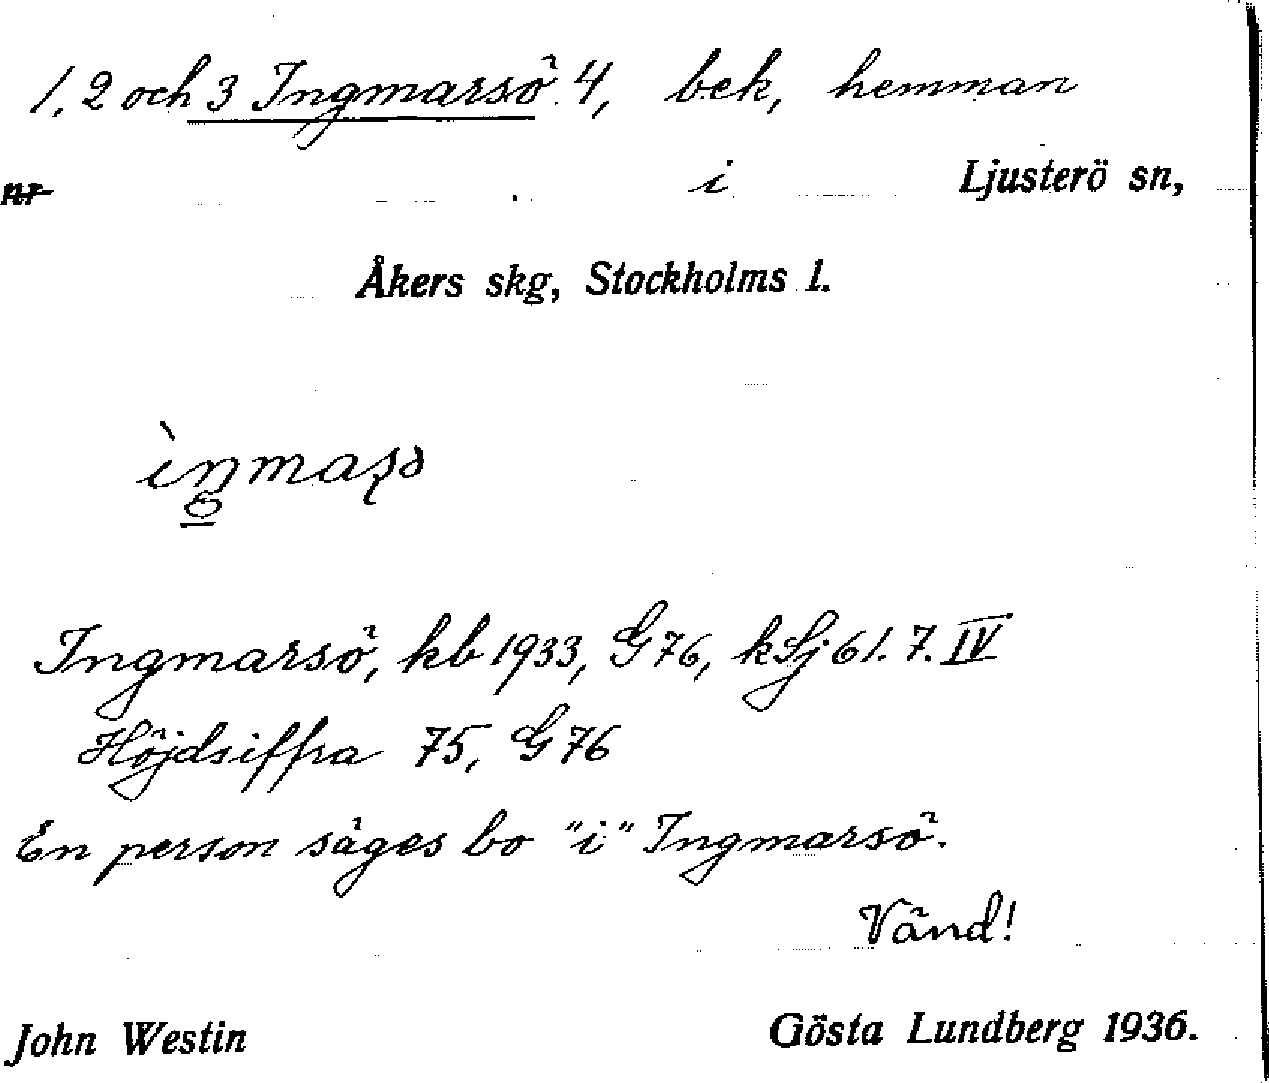 1, 2 och 3 Ingmarsö 4, bek, hemman
nr i Ljusterö sn,
Åkers skg, Stockholms l.
Ingmarsö, kb 1933, G 76, k Lj 61. 7. IV
Höjdsiffra 75, G 76
En person säges bo "i" Ingmarsö.
Vänd!
John Westin Gösta Lundberg 1936.